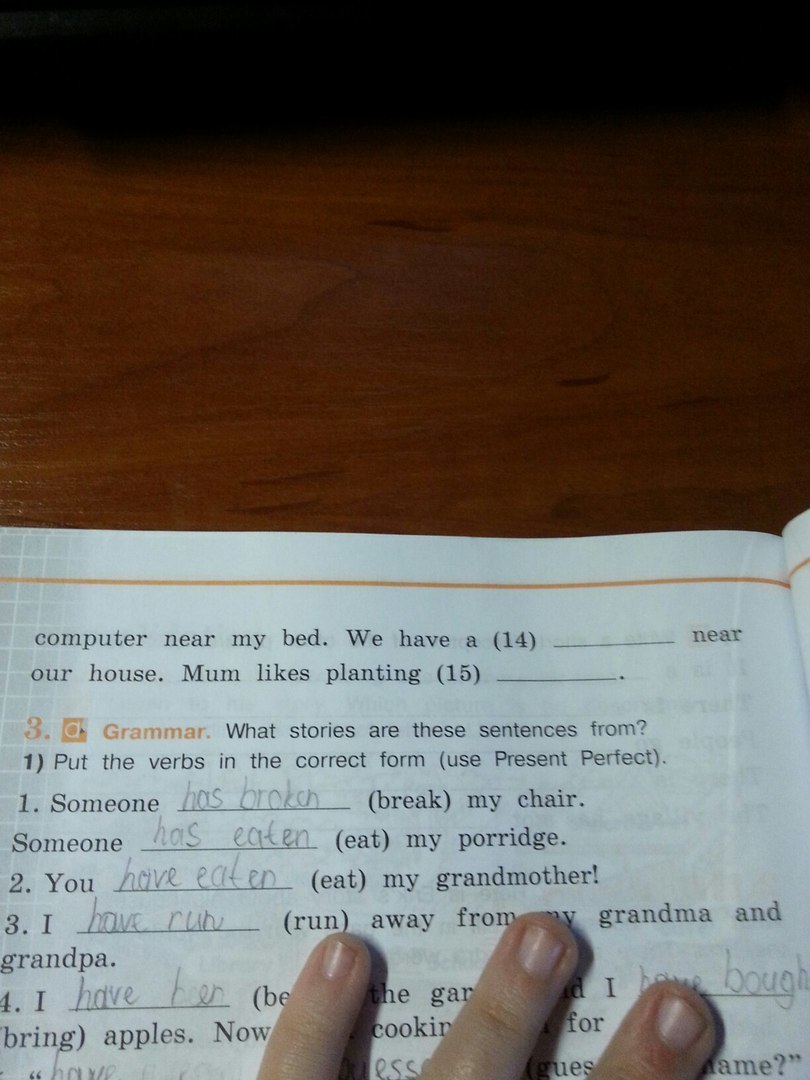 computer near my bed. We have a (14) ________ near
our house. Mum likes planting (15) ________.
3. Grammar. What stories are these sentences from?
1) Put the verbs in the correct form (use Present Perfect).
1. Someone has broken (break) my chair.
Someone has eaten (eat) my porridge.
2. You have eaten (eat) my grandmother!
3. I have run (run) away from my grandma and
grandpa.
4. I have been (be the I have bough
bring) apples. Now for
have name?"